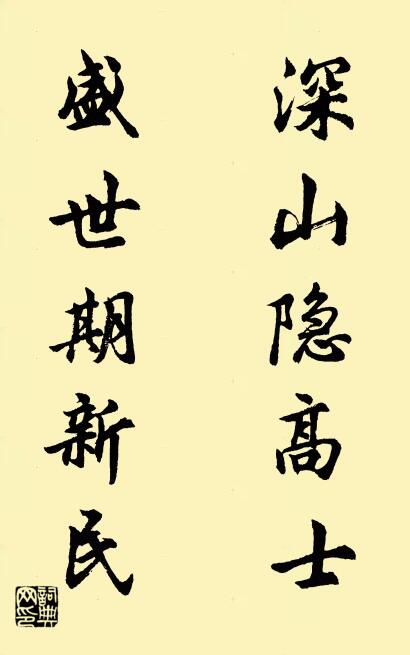 深山隐高士
盛世期新民
詞典
网印